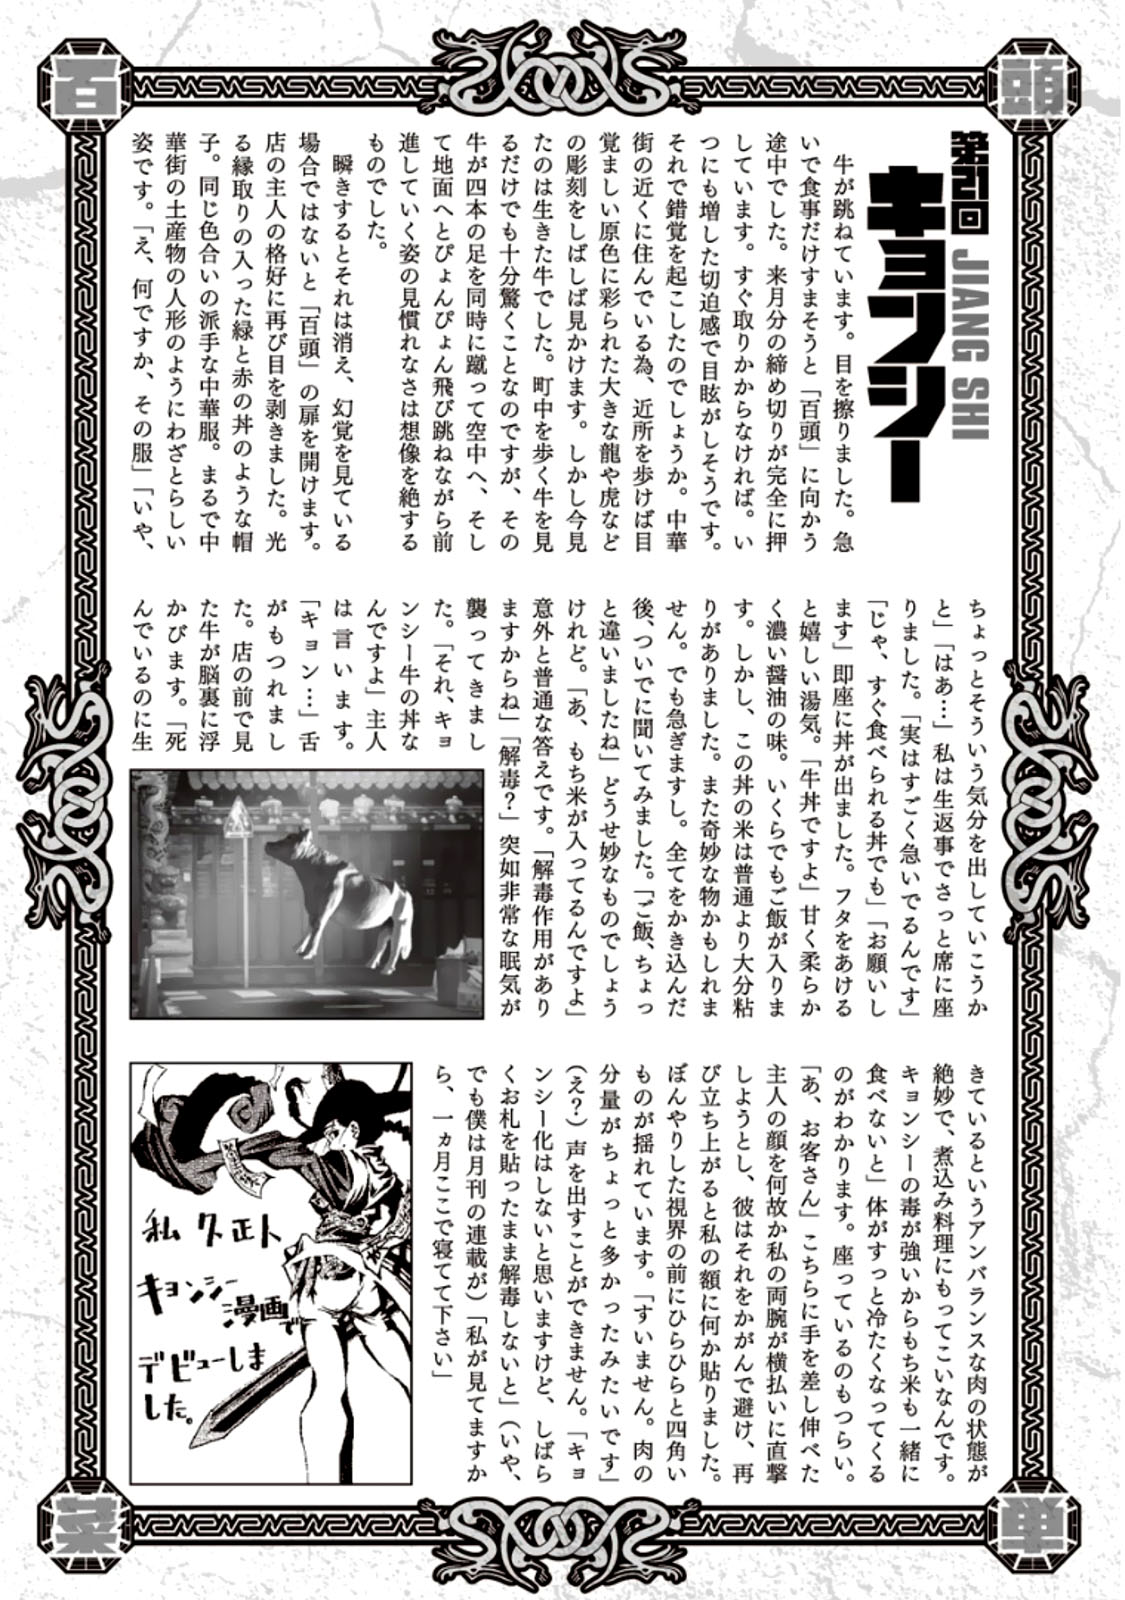 百
頭
菜
単
第21回
キョンシー
JIANG SHI
牛が跳ねています。目を擦りました。急
いで食事だけすまそうと「百頭」に向かう
途中でした。来月分の締め切りが完全に押
しています。すぐ取りかからなければ。い
つにも増した切迫感で目眩がしそうです。
それで錯覚を起こしたのでしょうか。中華
街の近くに住んでいる為、近所を歩けば目
覚ましい原色に彩られた大きな龍や虎など
の彫刻をしばしば見かけます。しかし今見
たのは生きた牛でした。町中を歩く牛を見
るだけでも十分驚くことなのですが、その
牛が四本の足を同時に蹴って空中へ、そし
て地面へとぴょんぴょん飛び跳ねながら前
進していく姿の見慣れなさは想像を絶する
ものでした。
瞬きするとそれは消え、幻覚を見ている
場合ではないと「百頭」の扉を開けます。
店の主人の格好に再び目を剥きました。光
る縁取りの入った緑と赤の丼のような帽
子。同じ色合いの派手な中華服。まるで中
華街の土産物の人形のようにわざとらしい
姿です。「え、何ですか、その服」「いや、
ちょっとそういう気分を出していこうか
と」「はあ…」私は生返事でさっと席に座
りました。「実はすごく急いでるんです」
「じゃ、すぐ食べられる丼でも」「お願いし
ます」即座に丼が出ました。フタをあける
と嬉しい湯気。「牛丼ですよ」甘く柔らか
く濃い醤油の味。いくらでもご飯が入りま
す。しかし、この丼の米は普通より大分粘
りがありました。また奇妙な物かもしれま
せん。でも急ぎますし。全てをかき込んだ
後、ついでに聞いてみました。「ご飯、ちょっ
と違いましたね」どうせ妙なものでしょう
けれど。「あ、もち米が入ってるんですよ」
意外と普通な答えです。「解毒作用があり
ますからね」「解毒？」突如非常な眠気が
襲ってきまし
た。「それ、キョ
ンシー牛の丼な
んですよ」主人
は言います。
「キョン…」舌
がもつれまし
た。店の前で見
た牛が脳裏に浮
かびます。「死
んでいるのに生
きているというアンバランスな肉の状態が
絶妙で、煮込み料理にもってこいなんです。
キョンシーの毒が強いからもち米も一緒に
食べないと」体がすっと冷たくなってくる
のがわかります。座っているのもつらい。
「あ、お客さん」こちらに手を差し伸べた
主人の顔を何故か私の両腕が横払いに直撃
しようとし、彼はそれをかがんで避け、再
び立ち上がると私の額に何か貼りました。
ぼんやりした視界の前にひらひらと四角い
ものが揺れています。「すいません。肉の
分量がちょっと多かったみたいです」
（え？）声を出すことができません。「キョ
ンシー化はしないと思いますけど、しばら
くお札を貼ったまま解毒しないと」（いや、
でも僕は月刊の連載が）「私が見てますか
ら、一ヵ月ここで寝てて下さい」
私 久正人
キョンシー
漫画で
デビューしま
した。